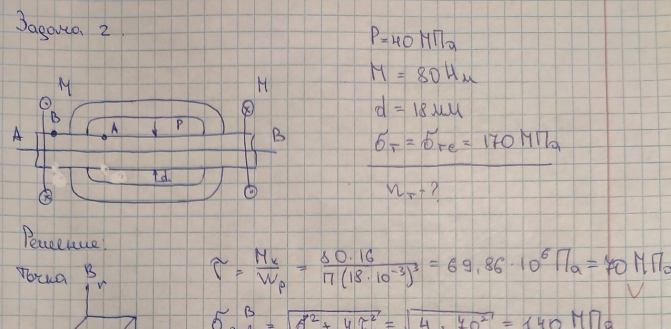 Задача 2.
P=40 МПа
M = 80 Нм
d = 18 мм
σт = σтс = 170 МПа
nт - ?
M M
B
A A P B
d
Решение:
τ = Mк/Wp = 80·16/П(18·10⁻³)³ = 69,86·10⁶ Па = 70 МПа
Точка B
r
B = √σ²+4τ² = √4·70² = 140 МПа